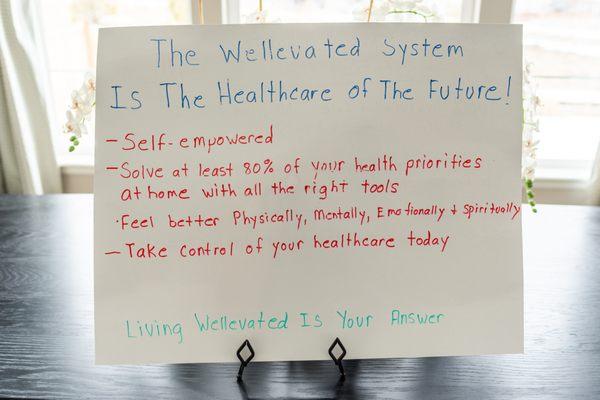 The Wellevated System
Is The Healthcare of The Future!
- Self-empowered
- Solve at least 80% of your health priorities
at home with all the right tools
· Feel better Physically, Mentally, Emotionally + Spiritually
- Take control of your healthcare today
Living Wellevated Is Your Answer